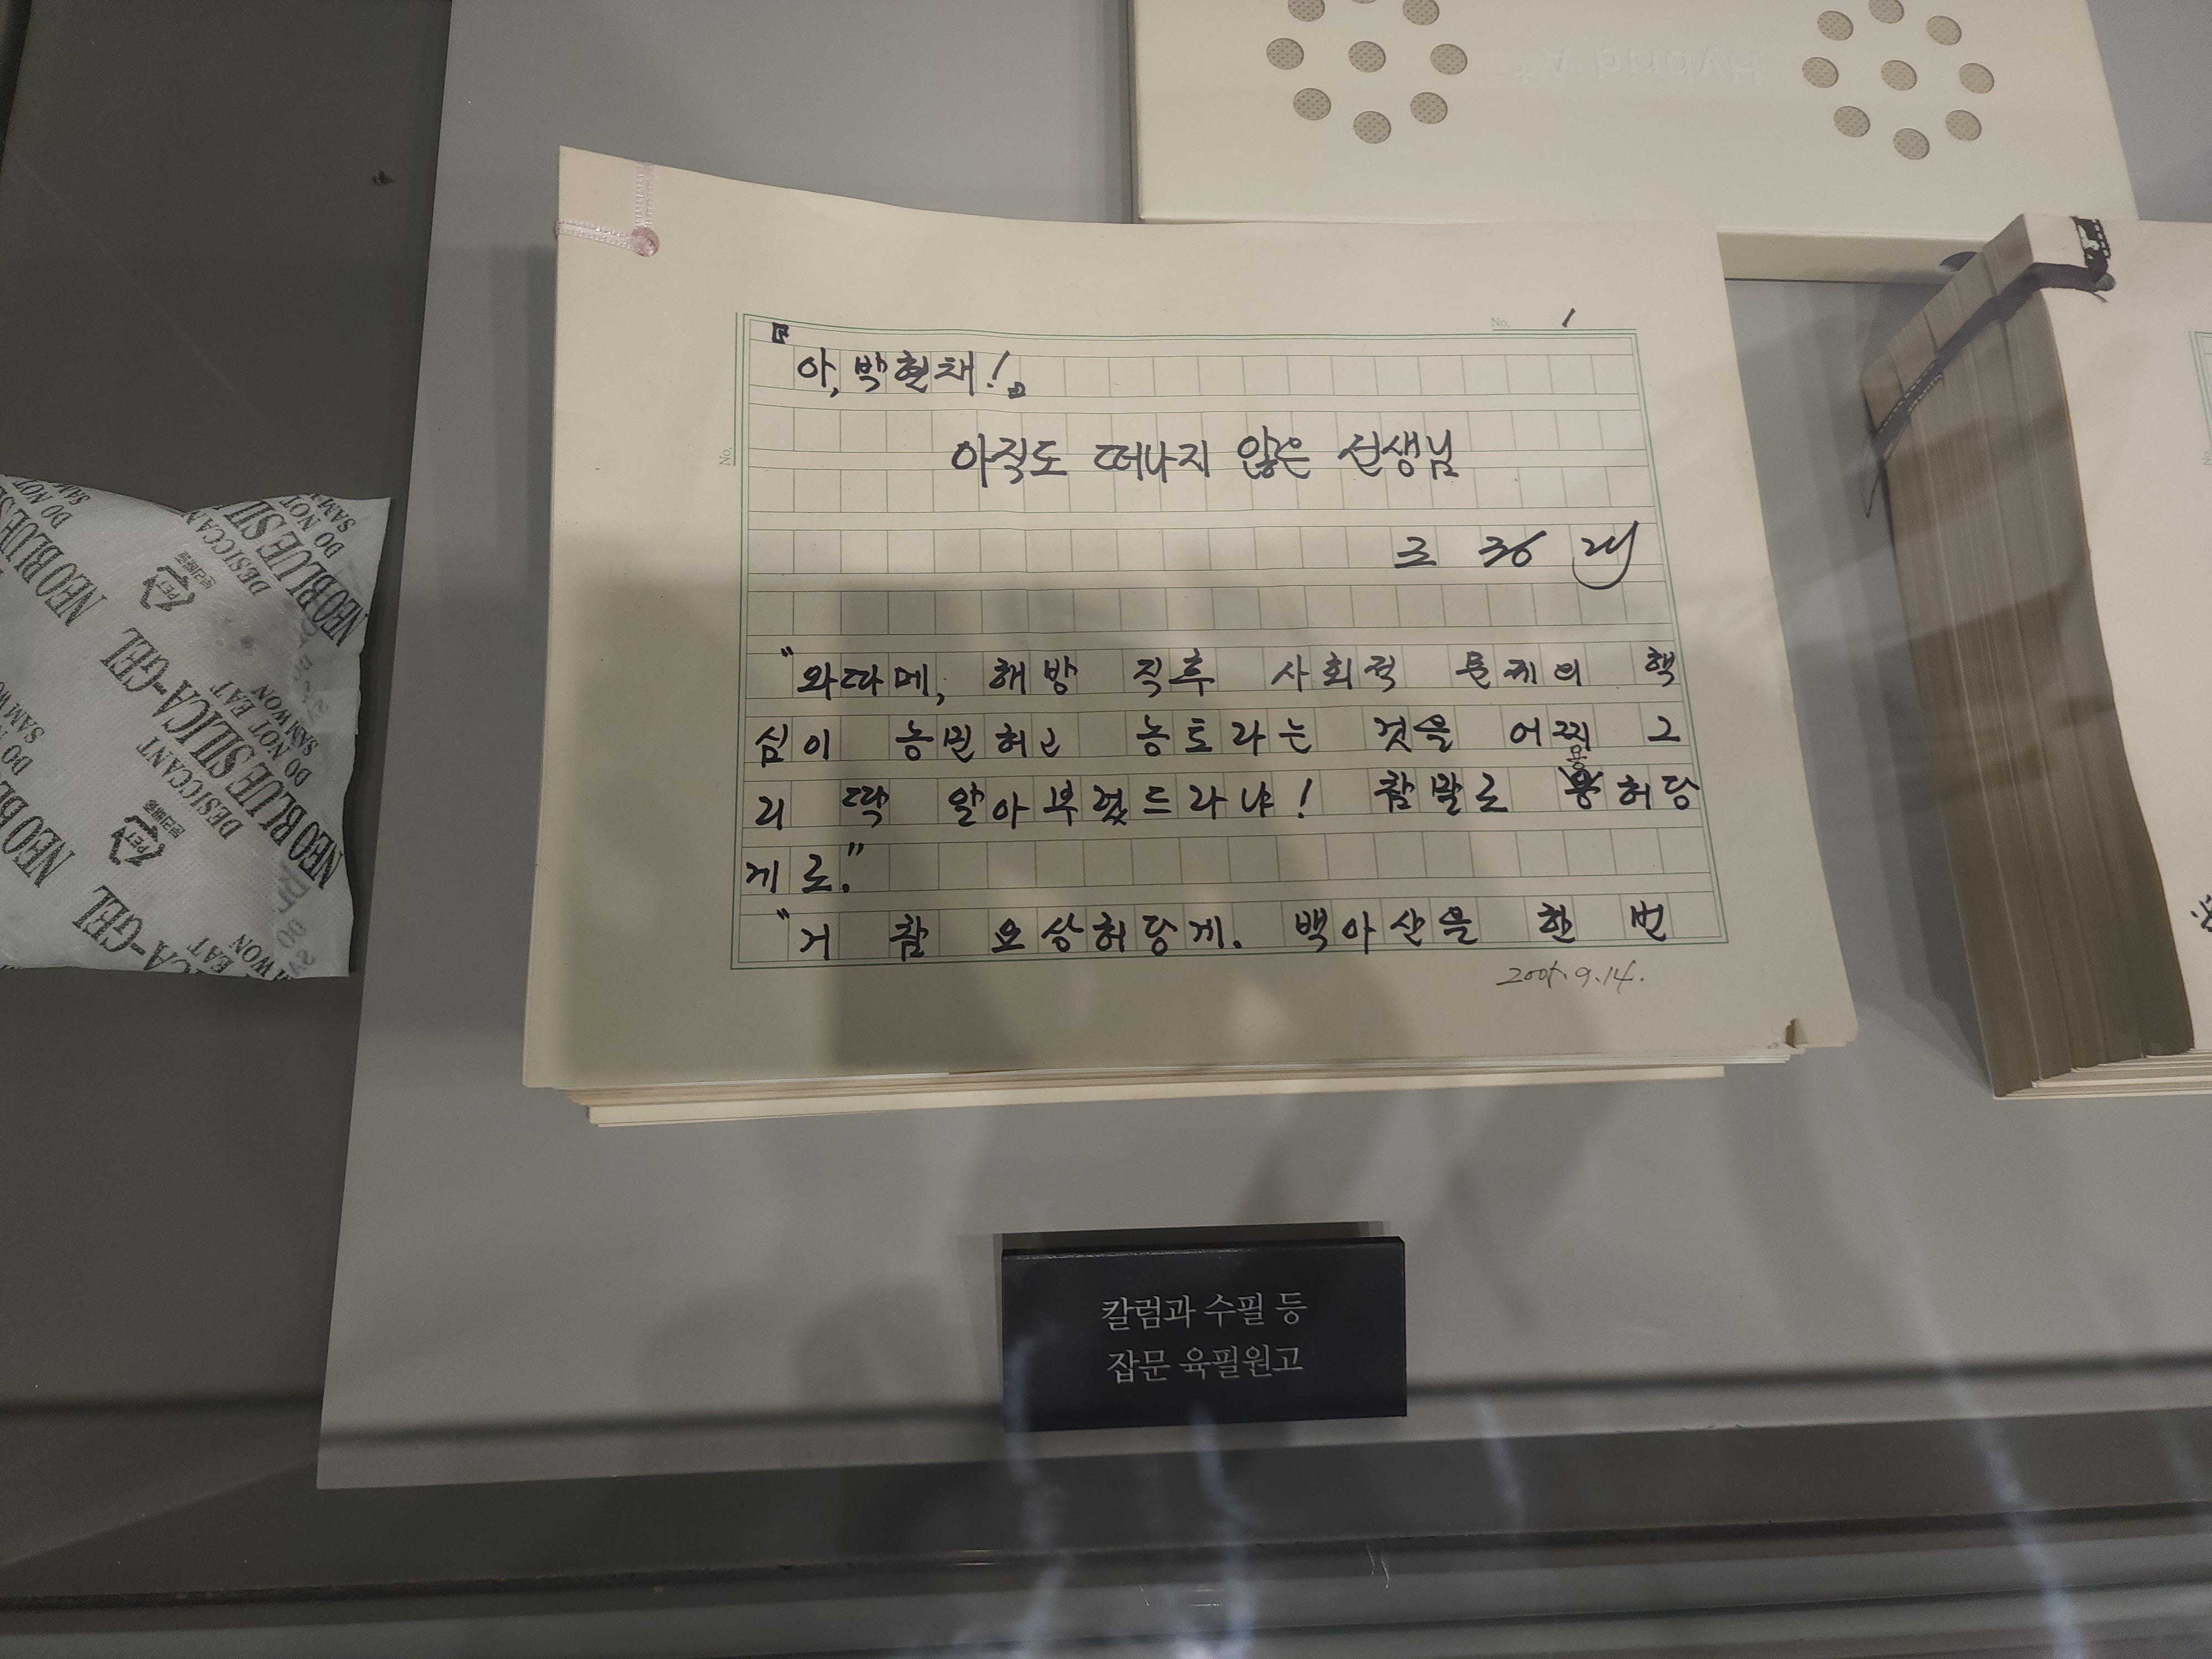 Hybrid A+
No. 1
『아, 박현채!』
No.
아직도 떠나지 않은 선생님
조정래
"와따메, 해방 직후 사회적 문제의 핵
심이 농민허고 농토라는 것을 어찌 그
리 딱 알아부렀드라냐! 참말로 용허당
게로."
"거 참 요상허당게. 백아산을 한 번
9.14.
칼럼과 수필 등
잡문 육필원고
NEO BLUE SILICA-GEL
DESICCANT
DO NOT EAT
SAMWON